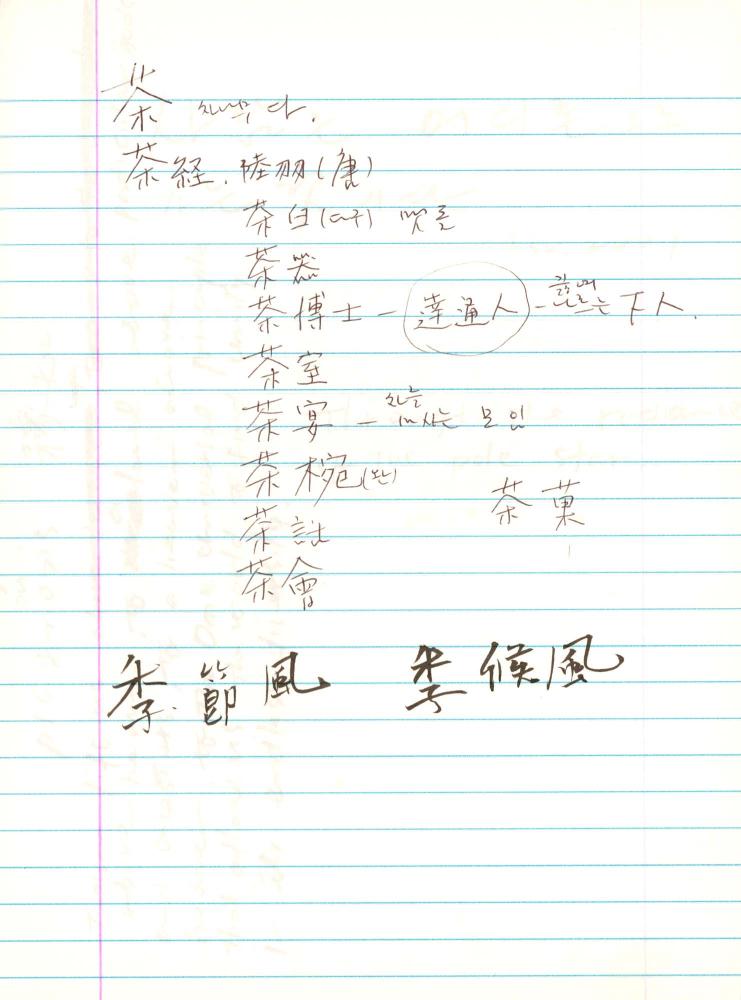 茶 차나무 다.
茶経. 陸羽(唐)
茶臼(다구) 맷돌
茶器
茶博士 - 達通人 - 끓여 는 下人.
茶室
茶宴 - 차를 마시는 모임
茶椀(완)
茶菓
茶話
茶會
季節風 季候風